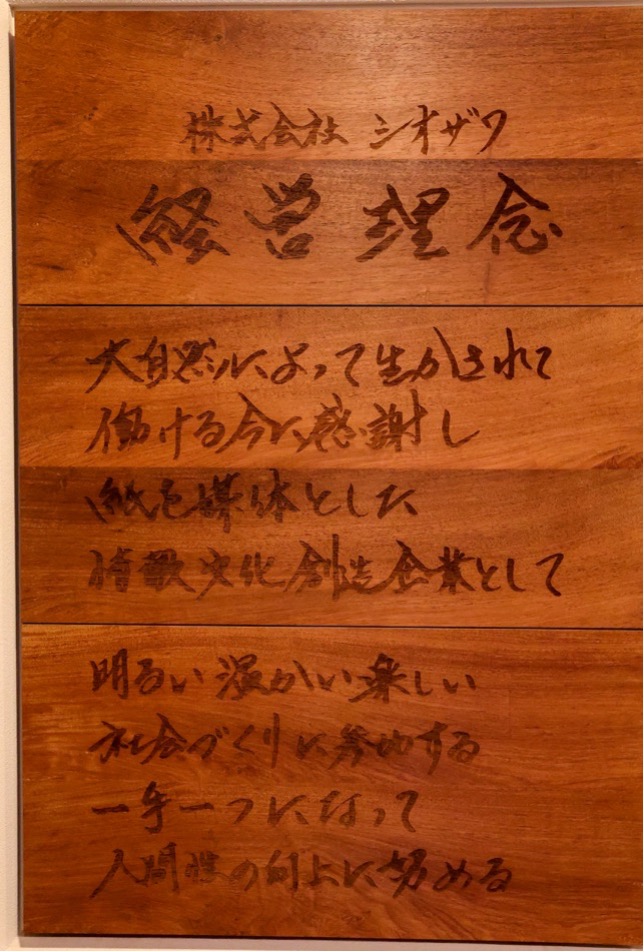 株式会社 シオザワ
経営理念
大自然によって生かされて
働ける今に感謝し
紙を媒体とした
情報文化創造企業として
明るい温かい楽しい
社会づくりに参加する
一手一つになって
人間性の向上に努める